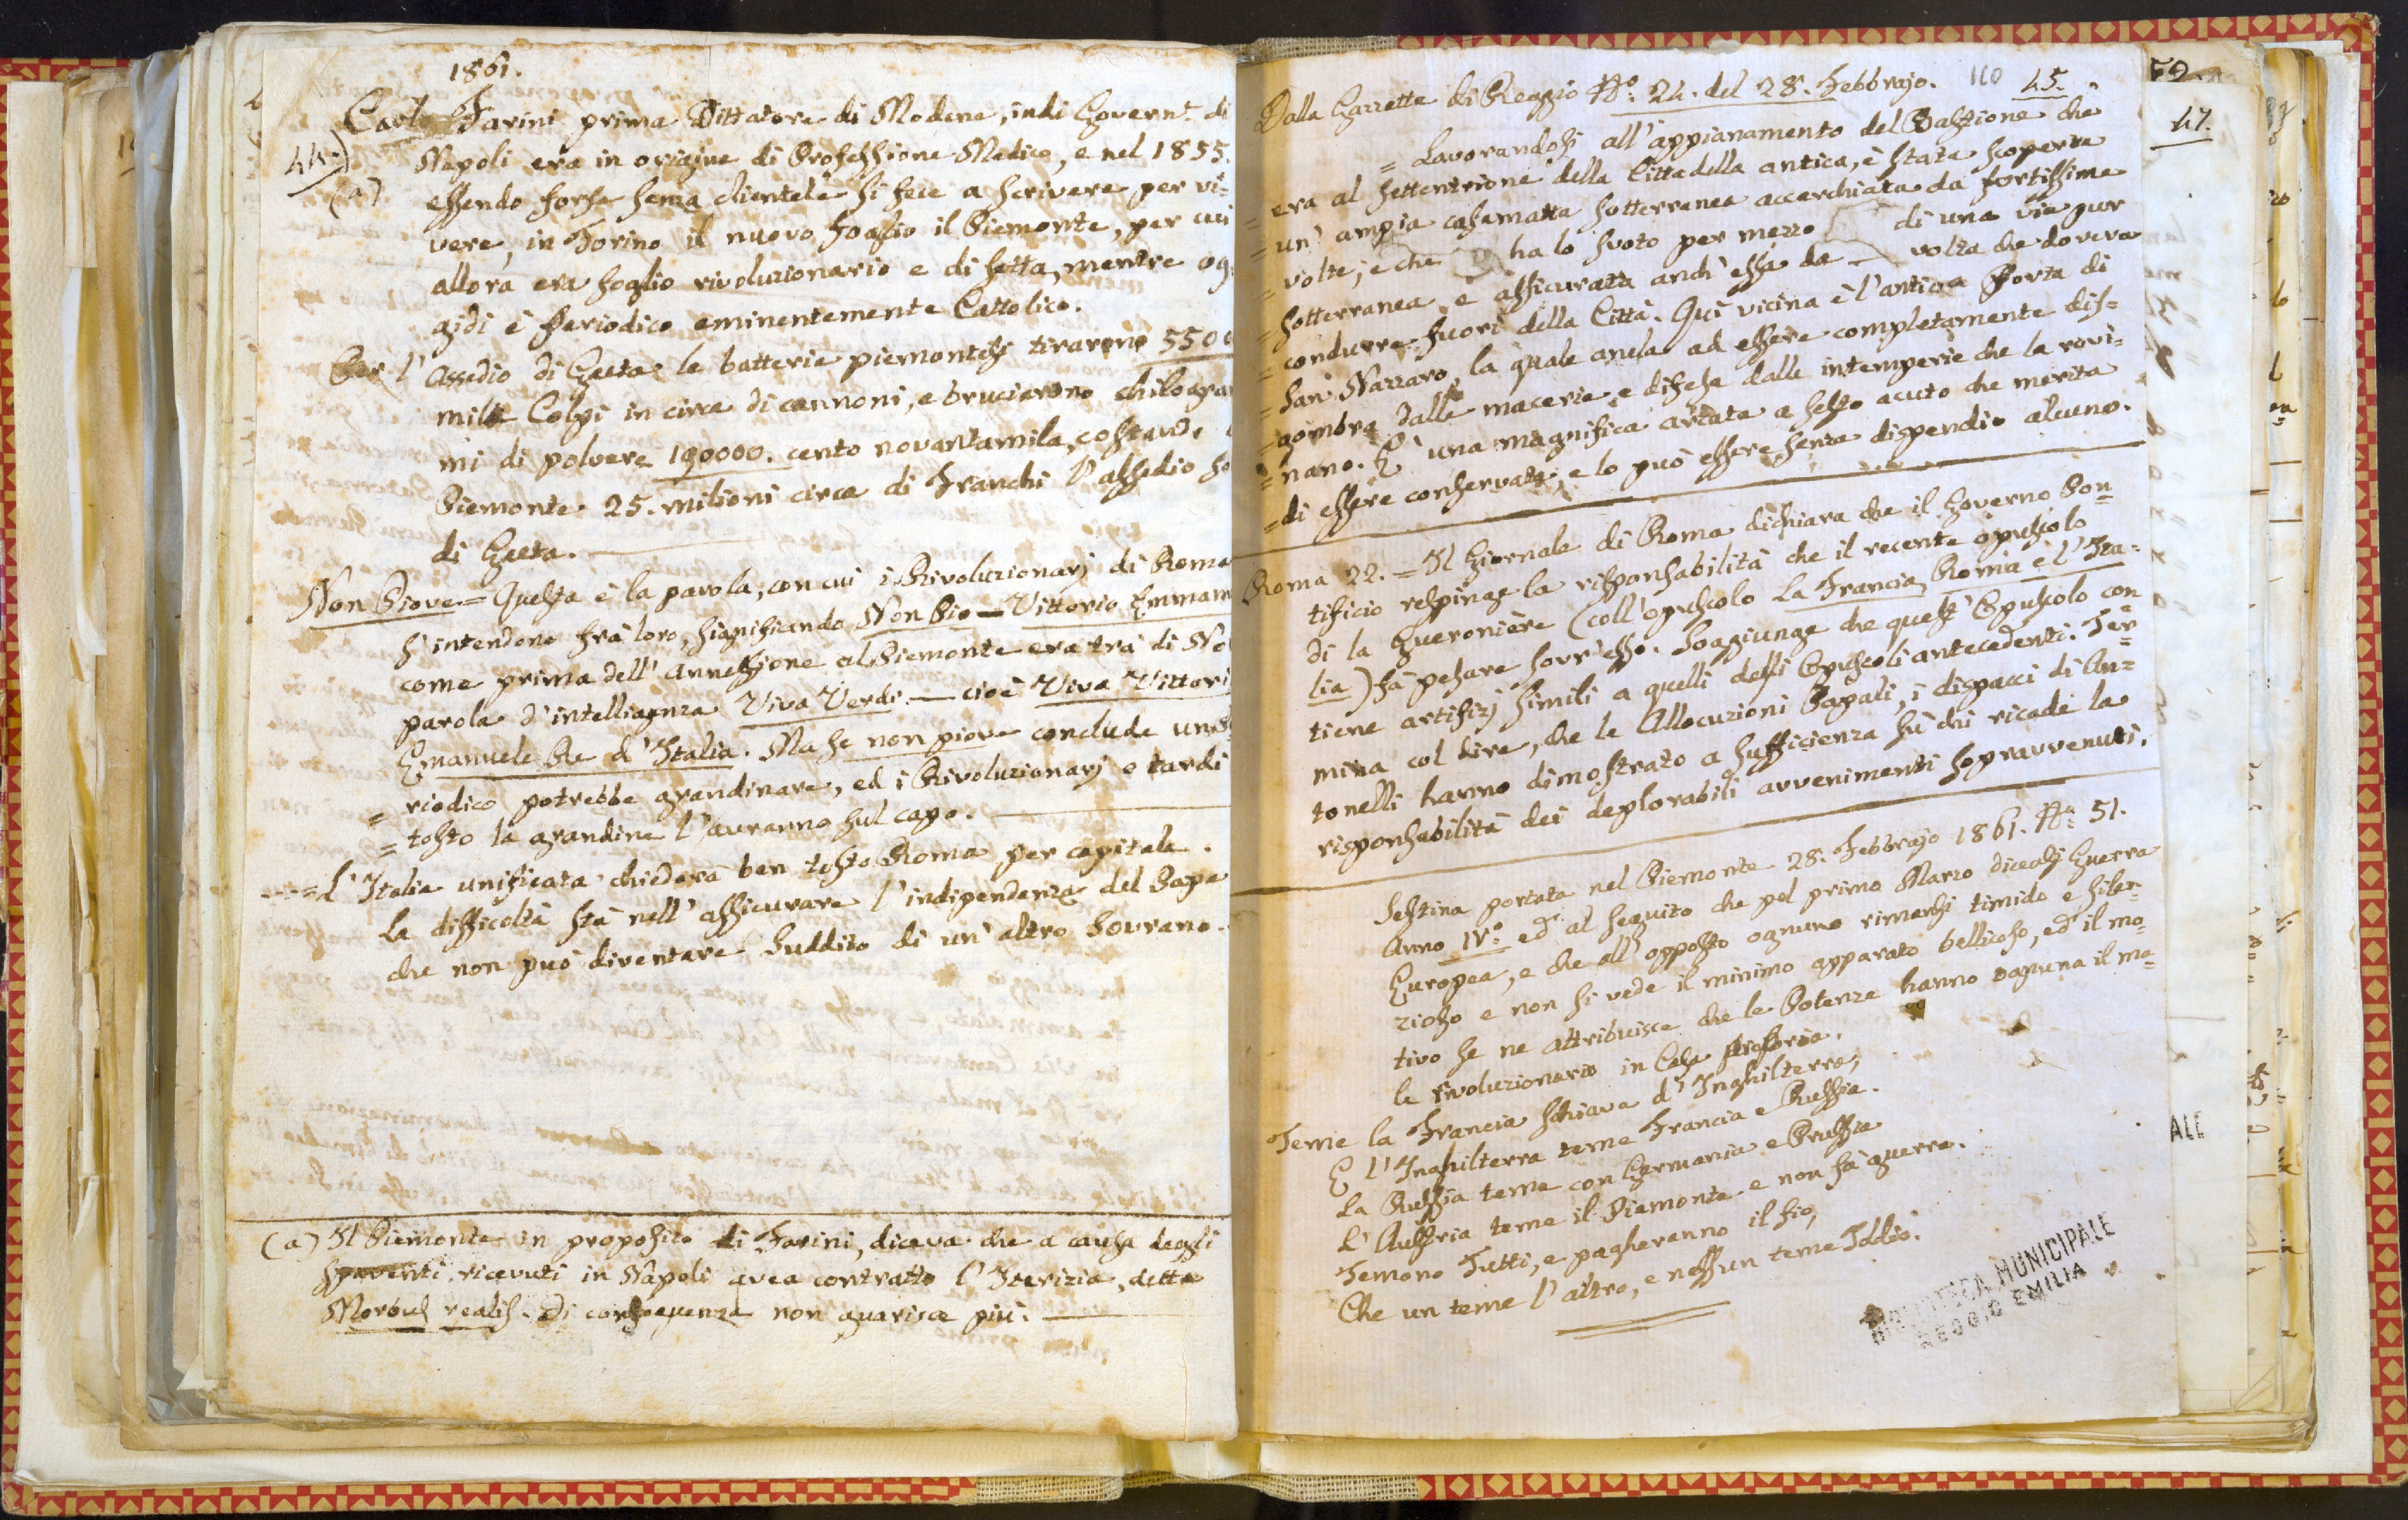 1861.
Carlo Farini prima Dittatore di Modena, indi Govern.e di
44.)
Napoli era in origine di Professione Medico, e nel 1855.
(a)
essendo forse senza clientele si fece a scrivere per vi=
vere, in Torino il nuovo foglio il Piemonte, per cui
allora era foglio rivoluzionario e di setta, mentre og
gidì è Periodico eminentemente Cattolico.
Per l' Assedio di Gaeta le batterie piemontesi tirarono 5500
mila Colpi in circa di cannoni, e bruciarono chilogra
mi di polvere 190000. cento novantamila, costando
Piemonte 25. milioni circa di Franchi l' assedio so
di Gaeta.
Non Piove = Questa è la parola, con cui i Rivoluzionarj di Roma
s' intendono frà loro, significando Non Pio — Vittorio Emman
come prima dell' Annessione al Piemonte era trà di No
parola d' intelligenza Viva Verdi — cioè Viva Vittori
Emanuele Re d' Italia. Ma se non piove conclude un
= riodico potrebbe grandinare, ed i Rivoluzionarj o tardi
= tosto la grandine l' avranno sul capo.
= L' Italia unificata chiederà ben tosto Roma per capitale.
La difficoltà stà nell' assicurare l' indipendenza del Papa
che non può diventare Suddito di un' altro Sovrano.
(a) Il Piemonte in proposito di Farini, diceva che a causa degli
spaventi ricevuti in Napoli avea contratto l' Iterizia, detta
Morbus realis. Di conseguenza non guarisce più.
Dalla Gazzetta di Reggio N.o 24. del 28. Febbrajo. 110 45.
= Lavorandosi all' appianamento del Bastione che
= era al settentrione della Cittadella antica, è stata scoperta
= un' ampia casamatta sotterranea accerchiata da fortissime
= volte; e che ha lo svoto per mezzo di una via pur
= sotterranea, e assicurata anch' essa da volta che doveva
= condurre fuori della Città. Quì vicina è l' antica Porta di
= San Nazzaro, la quale anela ad essere completamente dis=
= gombra dalle macerie, e difesa dalle intemperie che la rovi=
= nano. E' una magnifica arcata a sesto acuto che merita
= di essere conservata; e lo può essere senza dispendio alcuno.
Roma 22. = Il Giornale di Roma dichiara che il Governo Pon=
tificio respinge la risponsabilità che il recente opuscolo
di la Gueronière (coll' opuscolo La Francia, Roma e l' Ita=
lia) fà pesare sovr' esso. Soggiunge che quest' Opuscolo con
tiene artifizj simili a quelli delli Opuscoli antecedenti. Ter=
mina col dire, che le Allocuzioni Papali, i dispacci di An=
tonelli hanno dimostrato a sufficienza sù chi ricade la
risponsabilità dei deplorabili avvenimenti sopravvenuti.
Sestina portata nel Piemonte 28. Febbrajo 1861. N.o 51.
Anno IV.o ed al seguito che pel primo Marzo diceasi Guerra
Europea, e che all' opposto ognuno rimansi timido e silen=
zioso e non si vede il minimo apparato bellicoso, ed il mo=
tivo se ne attribuisce che le Potenze hanno ognuna il ma=
le rivoluzionario in Casa propria.
Teme la Francia schiava d' Inghilterra,
E l' Inghilterra teme Francia e Russia.
La Russia teme con Germania e Prussia
L' Austria teme il Piemonte e non fà guerra.
Temono Tutti, e pagheranno il fio,
Che un teme l' altro, e nessun teme Iddio.
BIBLIOTECA MUNICIPALE
REGGIO EMILIA
47.
ALE